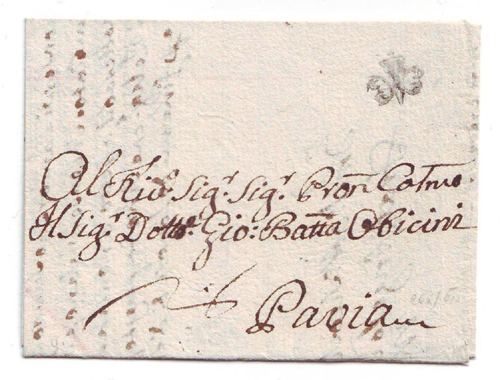 Al Sig.r Sig.r Pron Colmo
Il Sig.r Dott.r Gio: Batta Obicini
Pavia